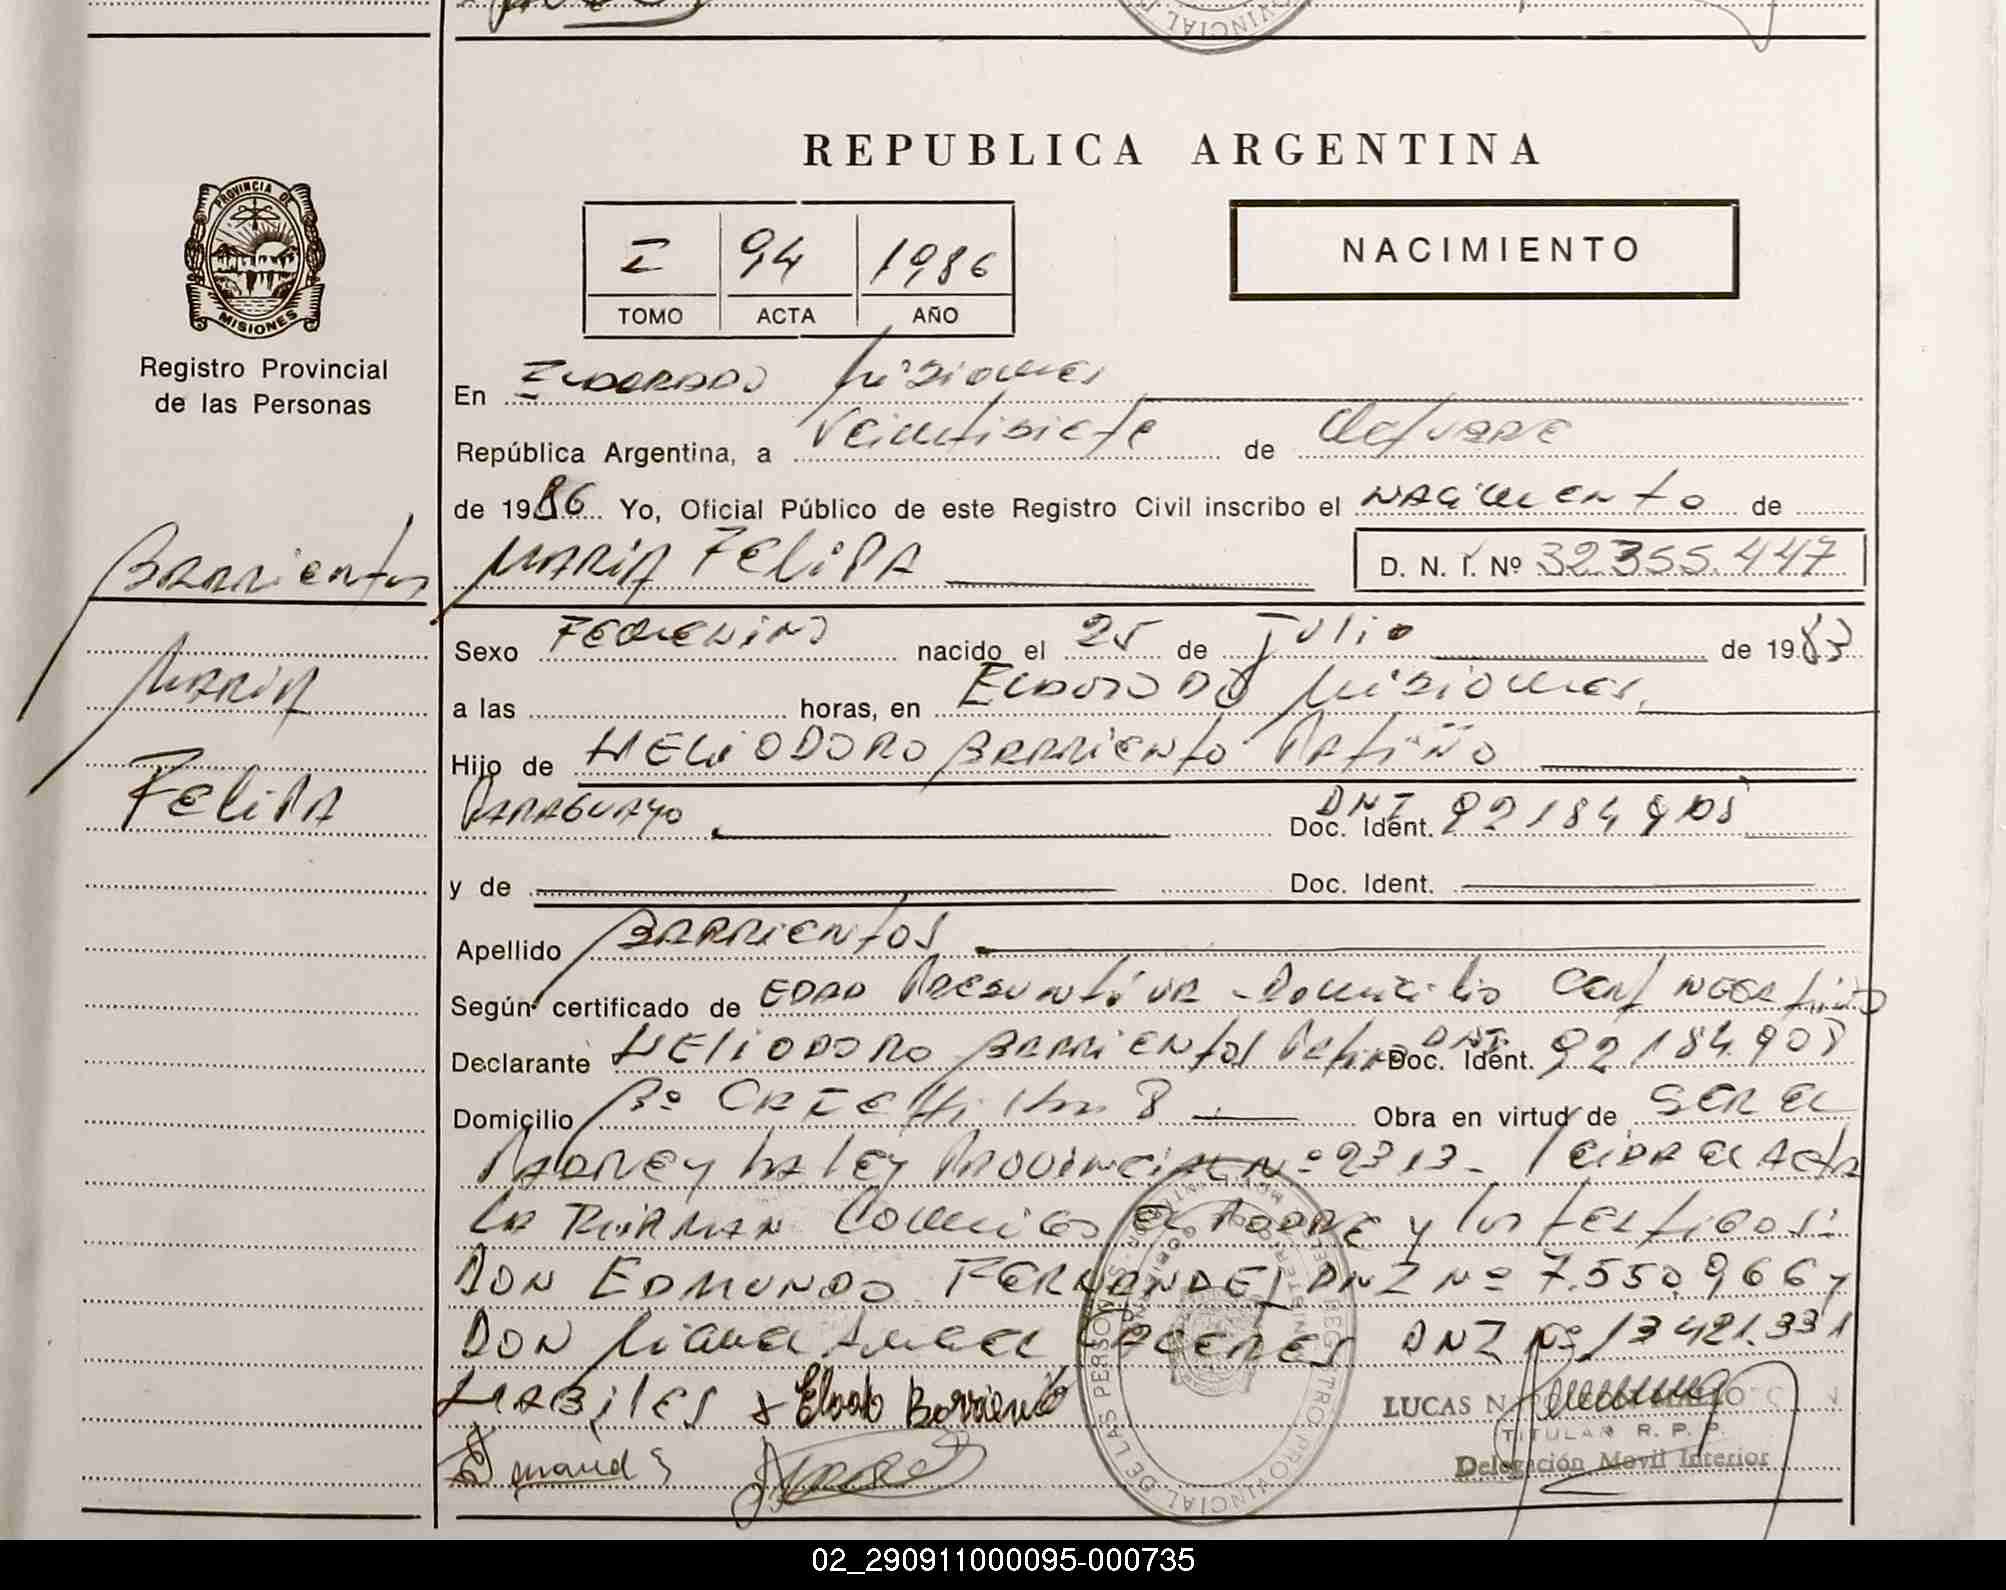 REPUBLICA ARGENTINA
PROVINCIA DE
MISIONES
Registro Provincial
de las Personas
I 94 1986
TOMO ACTA AÑO
NACIMIENTO
En ELDORADO Misiones
República Argentina, a Veintisiete de Octubre
de 1986 Yo, Oficial Público de este Registro Civil inscribo el NACIMIENTO de
MARIA FELIPA D. N. I. Nº 32.355.447
Barrientos
MARIA
FELIPA
Sexo FEMENINO nacido el 25 de Julio de 1983
a las horas, en ELDORADO Misiones,
Hijo de HELIODORO BARRIENTO PATIÑO
PARAGUAYO DNI Doc. Ident. 92184908
y de Doc. Ident.
Apellido BARRIENTOS
Según certificado de EDAD PRESUNTIVA - Domicilio
Declarante HELIODORO BARRIENTOS Patiño DNI Doc. Ident. 92184.908
Domicilio Bº Km 8 Obra en virtud de SER EL
PADRE y LA LEY PROVINCIAL Nº 2313 - Leida el Acta
LA FIRMAN Conmigo el PADRE y los testigos:
DON EDMUNDO FERNANDEZ DNI Nº 7.550.966 y
DON CACERES DNI Nº 13421.331
HABILES Barriento
LUCAS N
TITULAR R. P. P.
Delegación Movil Interior
REGISTRO PROVINCIAL DE LAS PERSONAS
02_290911000095-000735